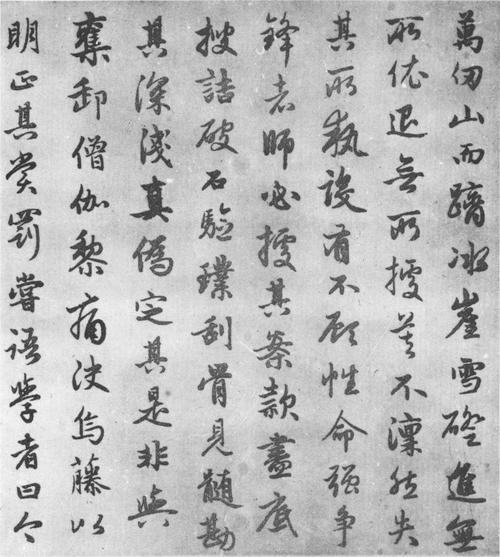 萬仞山而蹐冰崖雪磴進無
所依退無所據莫不凜然失
其所執設有不顧性命强爭
鋒者師必據其案款盡底
搜詰破石驗璞刮骨見髓勘
其深淺真偽定其是非與
奪卸僧伽黎痛決烏藤以
明正其賞罰嘗語學者曰今